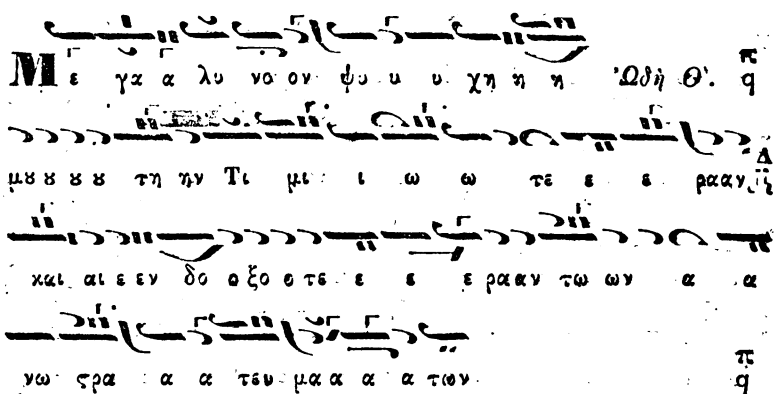 Μ ε γα α λυ νο ον ψυ υ υ χη η η Ὠδὴ Θ'. π q
μȣ ȣ ȣ ȣ τη ην Τι μι ι ω ω τε ε ε ρααν Δ
και αι ε εν δο ο ξο ο τε ε ε ε ρααν τω ων α α
νω ςρα α α τευ μα α α α των π q